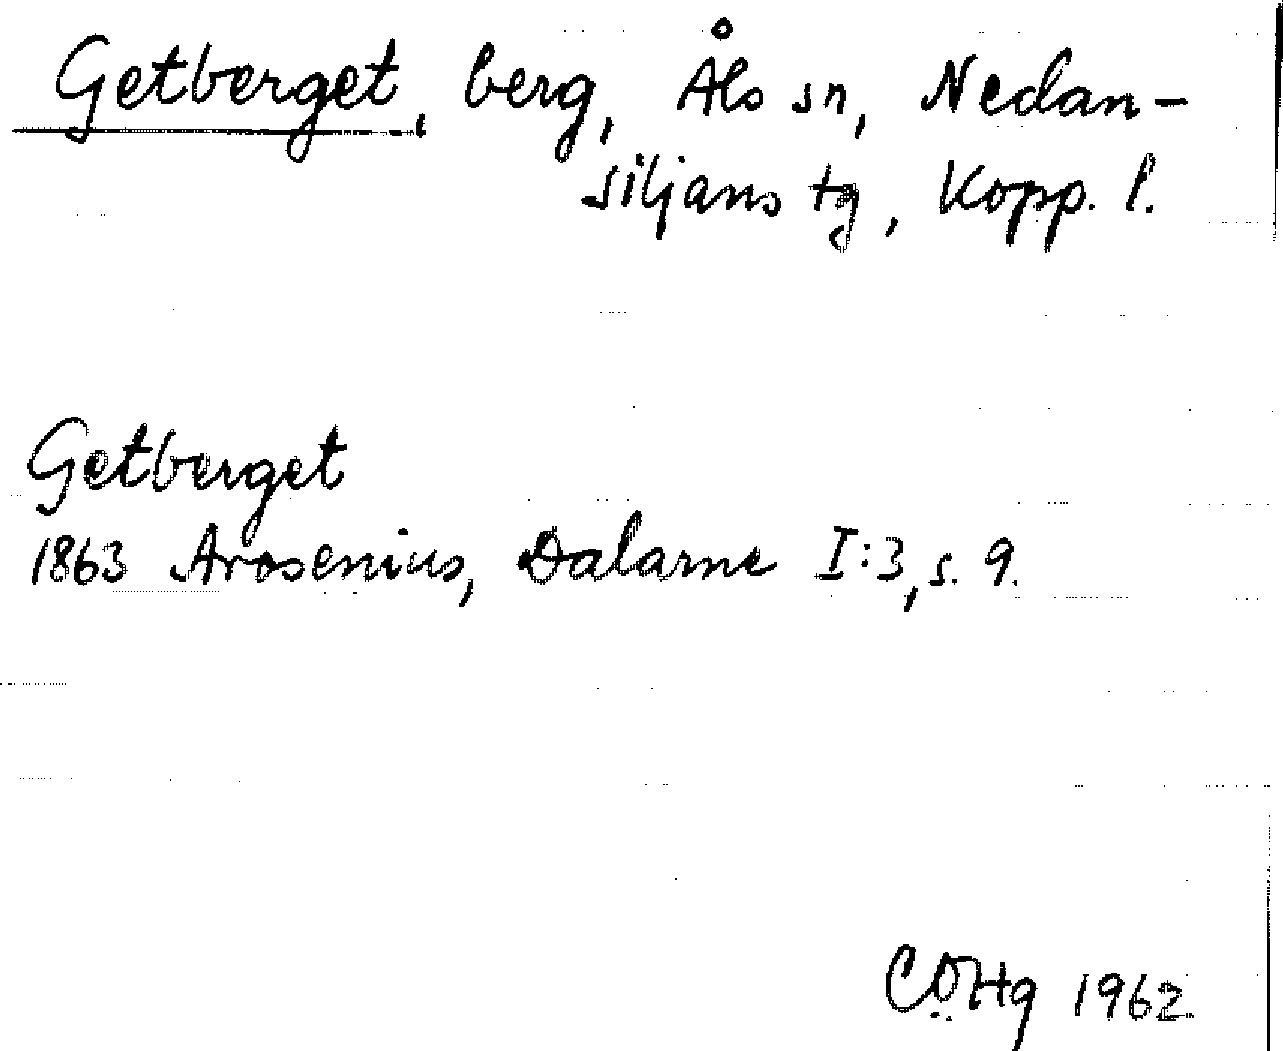 Getberget, berg, Åls sn, Nedan-
siljans tg, Kopp. l.
Getberget
1863 Arosenius, Dalarne I:3, s. 9.
COHg 1962